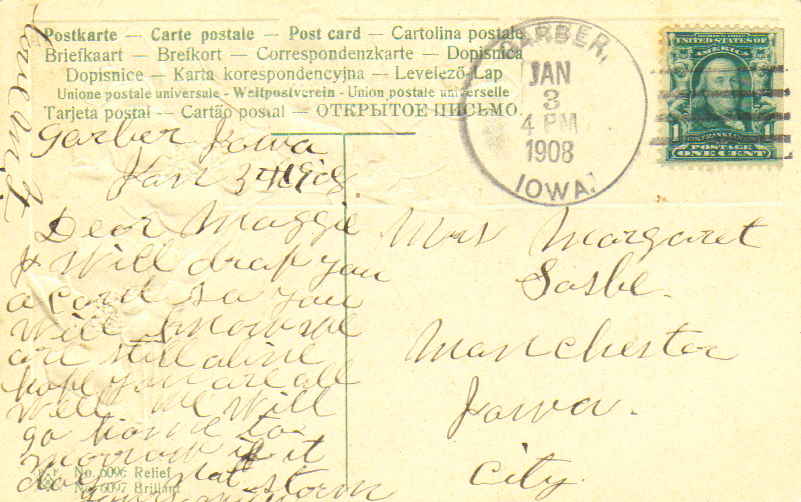 Postkarte — Carte postale — Post card — Cartolina postale
Briefkaart — Brefkort — Correspondenzkarte — Dopisnica
Dopisnice — Karta korespondencyjna — Levelező-Lap
Unione postale universale - Weltpostverein - Union postale universelle
Tarjeta postal — Cartão postal — ОТКРЫТОЕ ПИСЬМО.
GARBER,
JAN
3
4 PM
1908
IOWA.
UNITED STATES OF
AMERICA
1 1
POSTAGE
ONE CENT
Garber Iowa
Jan 3 1908
Dear Maggie
I Will drap you
a card so you
Will know we
are still alive
hope you are all
Well We Will
go home to
morrow if it
dose not storm
Mrs Margaret
Sasbe.
Manchester
Iowa.
City.
No. 6096 Relief
No. 6097 Brillant